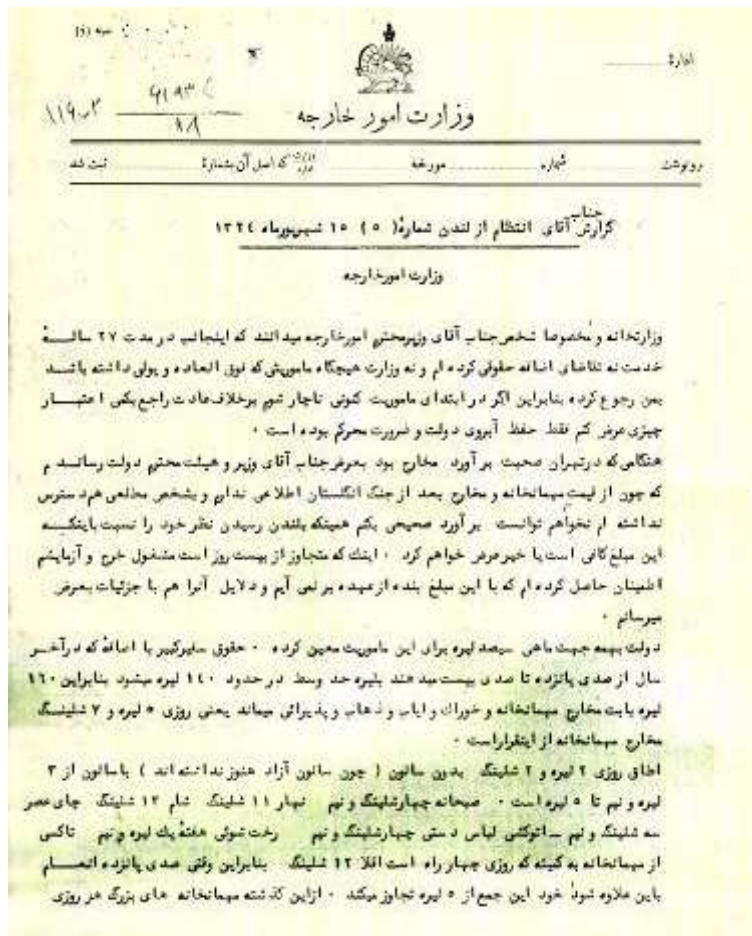 اداره
وزارت امور خارجه
رونوشت شماره مورخه که اصل آن بشمارهٔ ثبت شد
گزارش جناب آقای انتظام از لندن شمارهٔ (٥) ١٥ شهریورماه ١٣٢٤
وزارت امورخارجه
وزارتخانه و مخصوصا شخص جناب آقای وزیرمحترم امورخارجه میدانند که اینجانب در مدت ٢٧ سالـــهٔ
خدمت نه تقاضای اضافه حقوقی کرده ام و نه وزارت هیچگاه ماموریتی که فوق العاده و پولی داشته باشـــد
بمن رجوع کرده بنابراین اگر در ابتدای ماموریت کنونی ناچار شوم برخلاف عادت راجع بکمی اعتبـــار
چیزی عرض کنم فقط حفظ آبروی دولت و ضرورت محرکم بوده است ٠
هنگامی که در تهران صحبت بر آورد مخارج بود بعرض جناب آقای وزیر و هیئت محترم دولت رسانـــدم
که چون از قیمت مهمانخانه و مخارج بعد از جنگ انگلستان اطلاعی ندارم و بشخص مطلعی هم دسترس
نداشته ام نخواهم توانست بر آورد صحیحی بکنم همینکه بلندن رسیدم نظر خود را نسبت باینکـــه
این مبلغ کافی است یا خیر عرض خواهم کرد ٠ اینک که متجاوز از بیست روز است مشغول خرج و آزمایشم
اطمینان حاصل کرده ام که با این مبلغ بنده از عهده بر نمی آیم و دلایل آنرا هم با جزئیات بعرض
میرسانم ٠
دولت بهمه جهت ماهی سیصد لیره برای این ماموریت معین کرده ٠ حقوق سفیرکبیر با اضافهٔ که در آخـــر
سال از صدی پانزده تا صدی بیست میدهند بلیره حد وسط در حدود ١٤٠ لیره میشود بنابراین ١٦٠
لیره بابت مخارج مهمانخانه و خوراک و ایاب و ذهاب و پذیرائی میماند یعنی روزی ٥ لیره و ٧ شلینـــگ
مخارج مهمانخانه از اینقرار است ٠
اطاق روزی ٢ لیره و ٢ شلینگ بدون سالون ( چون سالون آزاد هنوز نداشته اند ) باسالون از ٣
لیره و نیم تا ٥ لیره است ٠ صبحانه چهارشلینگ و نیم نهار ١١ شلینگ شام ١٣ شلینگ چای عصر
سه شلینگ و نیم ـ اتوکشی لباس دستی چهارشلینگ و نیم رخت شوئی هفتهٔ یک لیره و نیم تاکسی
از مهمانخانه به کمیته که روزی چهار راه است اقلا ١٢ شلینگ بنابراین وقتی صدی پانزده انعـــام
باین علاوه شود خود این جمع از ٥ لیره تجاوز میکند ٠ ازاین گذشته مهمانخانه های بزرگ هر روزی